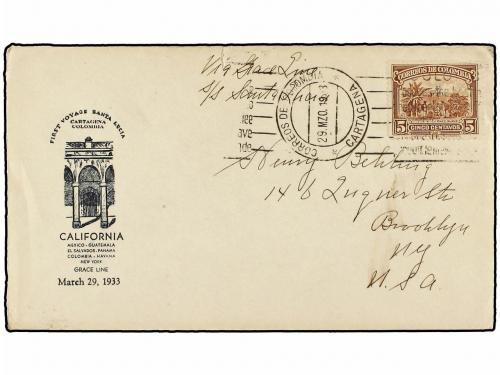 Via Grace Line
S/S Santa Lucia
CORREOS DE COLOMBIA
CARTAGENA
29.MZO.1933
CORREOS DE COLOMBIA
5 CINCO CENTAVOS 5
FIRST VOYAGE SANTA LUCIA
CARTAGENA
COLOMBIA
CALIFORNIA
MEXICO - GUATEMALA
EL SALVADOR - PANAMA
COLOMBIA - HAVANA
NEW YORK
GRACE LINE
March 29, 1933
Henry Behning
146 Luquer St.
Brooklyn
NY
U.S.A.